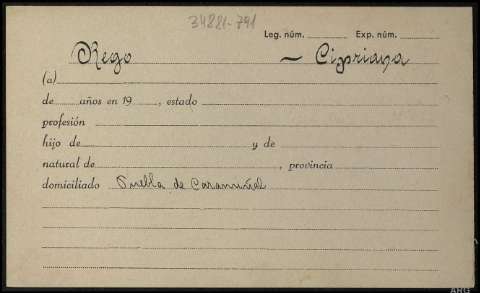 34881-791
Leg. núm. Exp. núm.
Rego — Cipriana
(a)
de años en 19 , estado
profesión
hijo de y de
natural de , provincia
domiciliado Puebla de Caramiñal
ARG